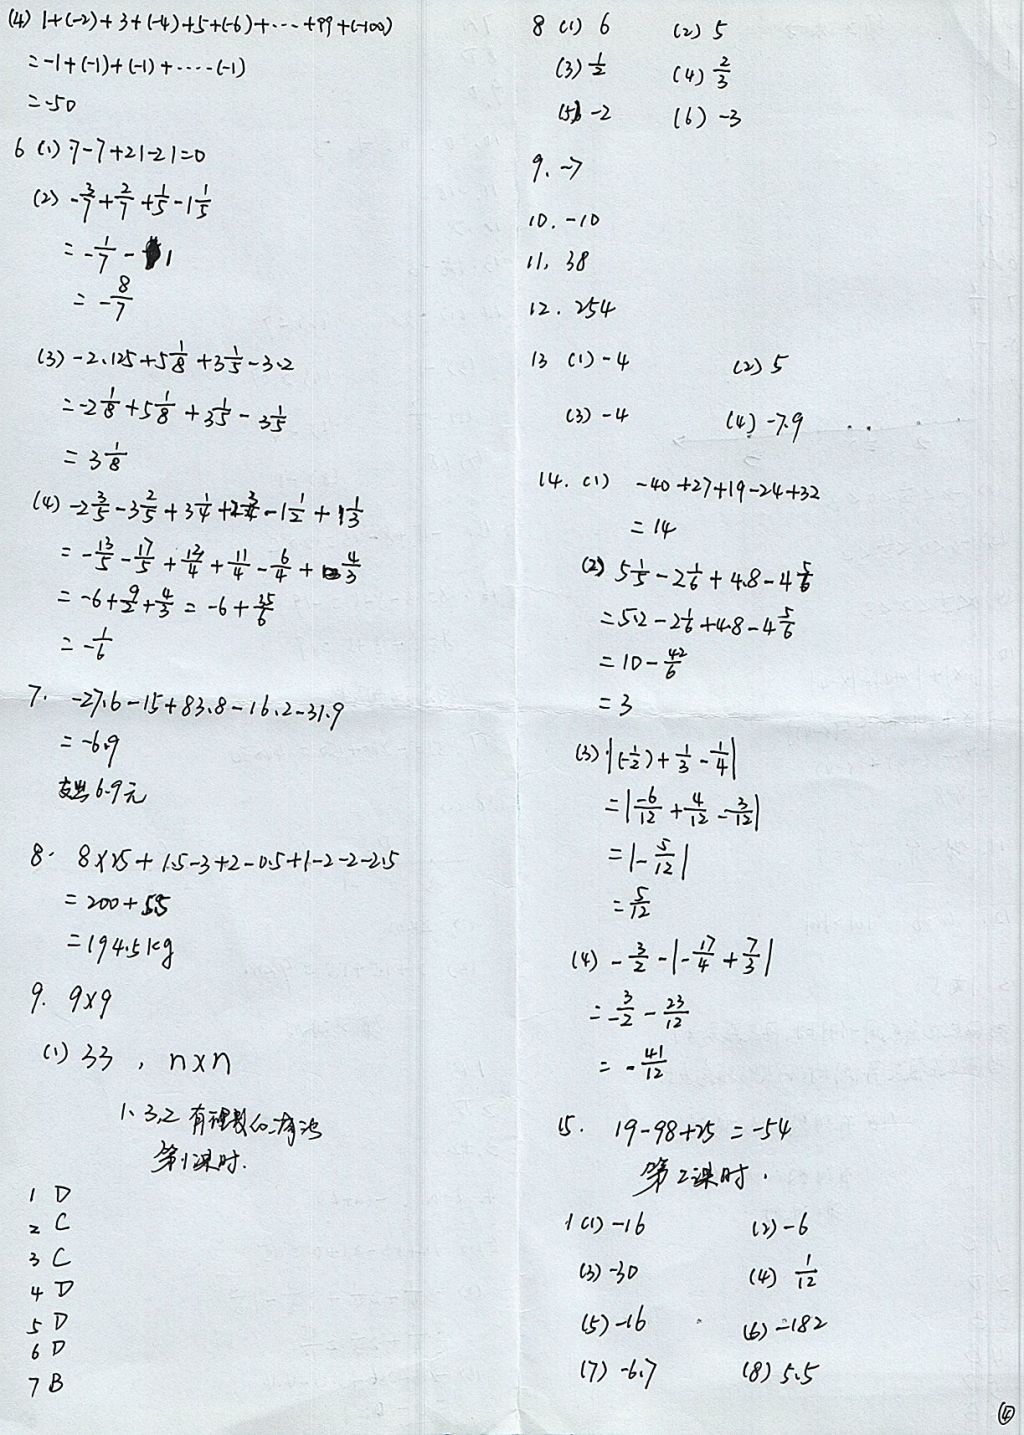 (4) 1+(-2)+3+(-4)+5+(-6)+…+99+(-100)
=-1+(-1)+(-1)+……(-1)
=-50
6 (1) 7-7+21-21=0
(2) -3/7+2/7+1/5-1 1/5
=-1/7-1
=-8/7
(3) -2.125+5 1/8+3 1/5-3.2
=-2 1/8+5 1/8+3 1/5-3 1/5
=3 1/8
(4) -2 3/5-3 2/5+3 1/4+2 3/4-1 1/2+1 1/3
=-13/5-17/5+13/4+11/4-6/4+4/3
=-6+9/2+4/3=-6+35/6
=-1/6
7. -27.6-15+83.8-16.2-31.9
=-6.9
支出6.9元
8. 8×25+1.5-3+2-0.5+1-2-2-2.5
=200+5.5
=194.5kg
9. 9×9
(1) 33, n×n
1.3.2 有理数的减法
第1课时.
1 D
2 C
3 C
4 D
5 D
6 D
7 B
8 (1) 6 (2) 5
(3) 1/2 (4) 2/3
(5) -2 (6) -3
9. -7
10. -10
11. 38
12. 254
13 (1) -4 (2) 5
(3) -4 (4) -7.9
14. (1) -40+27+19-24+32
=14
(2) 5 1/5-2 1/6+4.8-4 5/6
=5.2-2 1/6+4.8-4 5/6
=10-42/6
=3
(3) |(-1/2)+1/3-1/4|
=|-6/12+4/12-3/12|
=|-5/12|
=5/12
(4) -3/2-|-17/4+7/3|
=-3/2-23/12
=-41/12
15. 19-98+25=-54
第2课时.
1 (1) -16 (2) -6
(3) -30 (4) 1/12
(5) -16 (6) -182
(7) -6.7 (8) 5.5
④